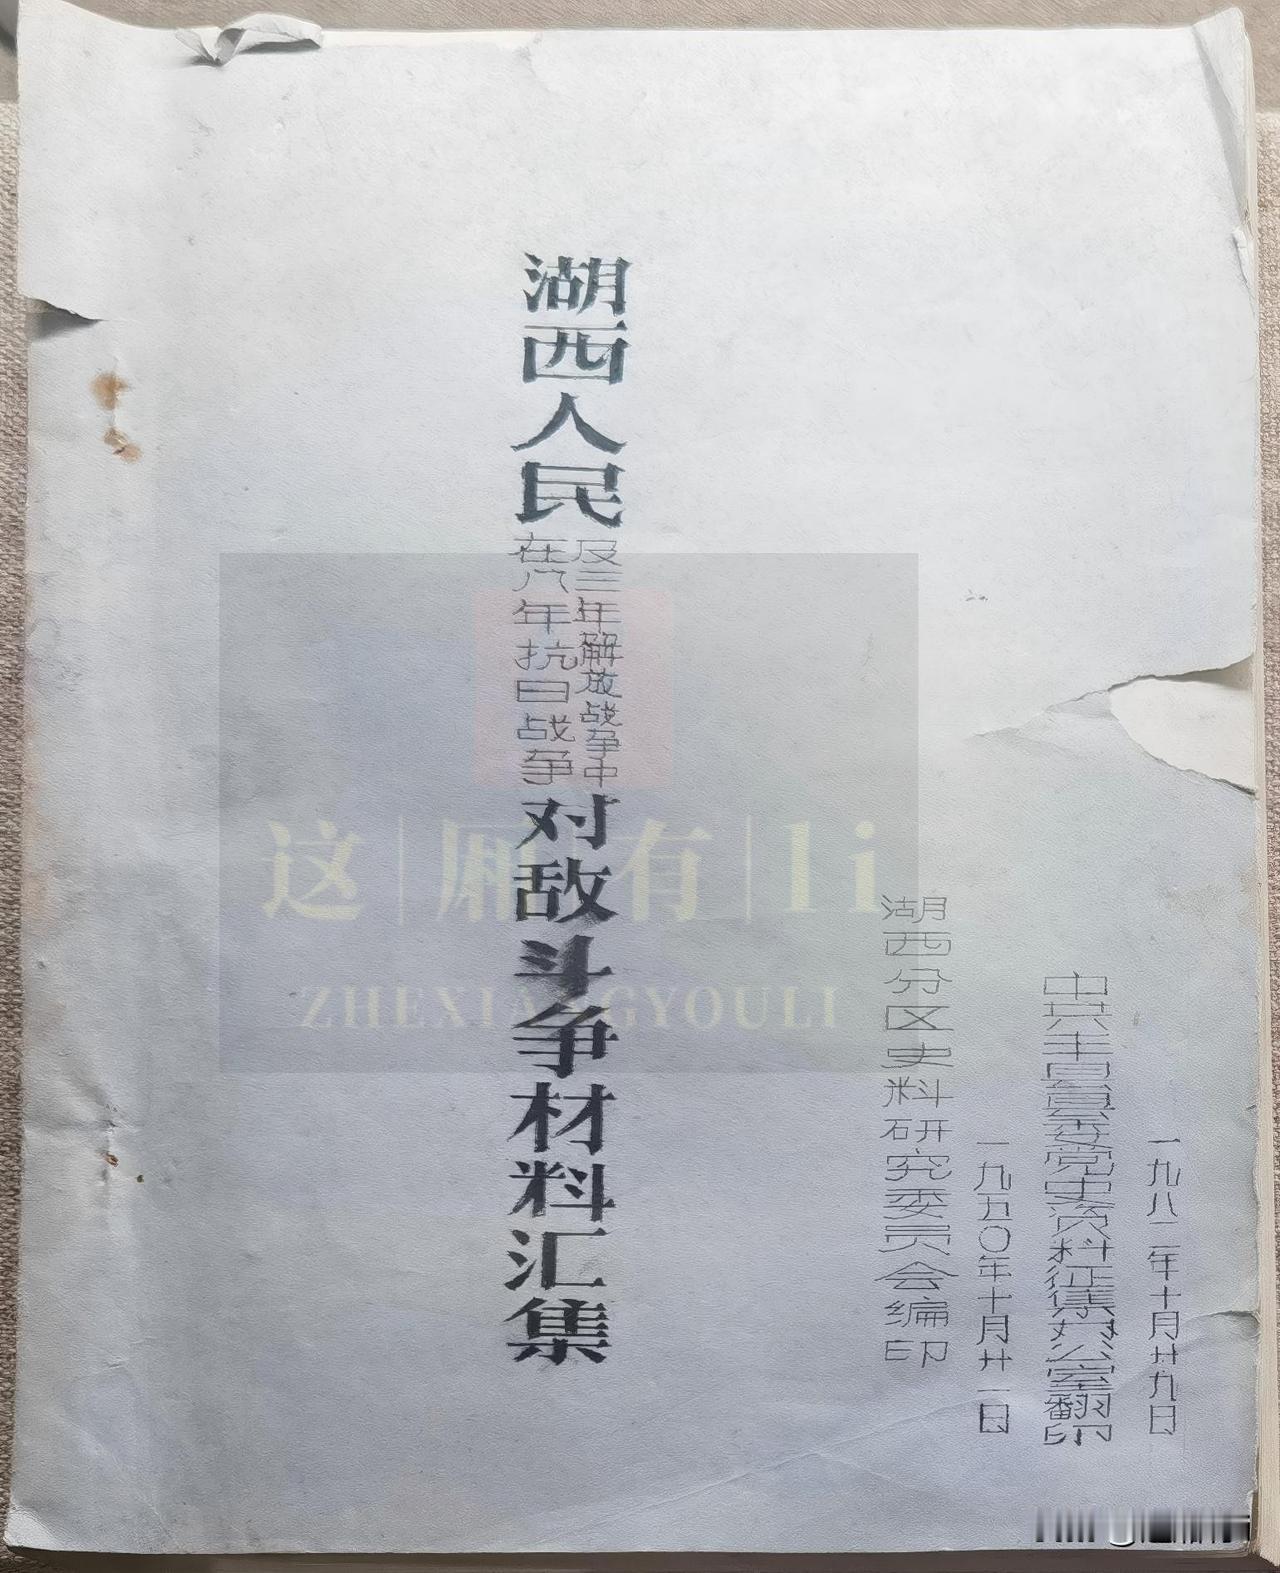 湖西人民
在八年抗日战争
及三年解放战争中
对敌斗争材料汇集
湖西分区史料研究委员会编印
一九五〇年十月廿一日
中共丰县县委党史资料征集办公室翻印
一九八二年十月廿九日
这|厢|有|li
ZHEXIANGYOULI